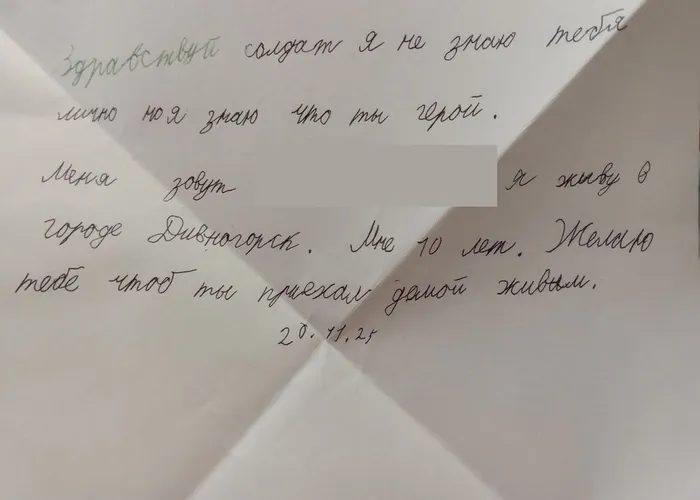 Здравствуй солдат я не знаю тебя
лично но я знаю что ты герой.
Меня зовут я жыву в
городе Дивногорск. Мне 10 лет. Желаю
тебе чтоб ты приехал домой живым.
20.11.25